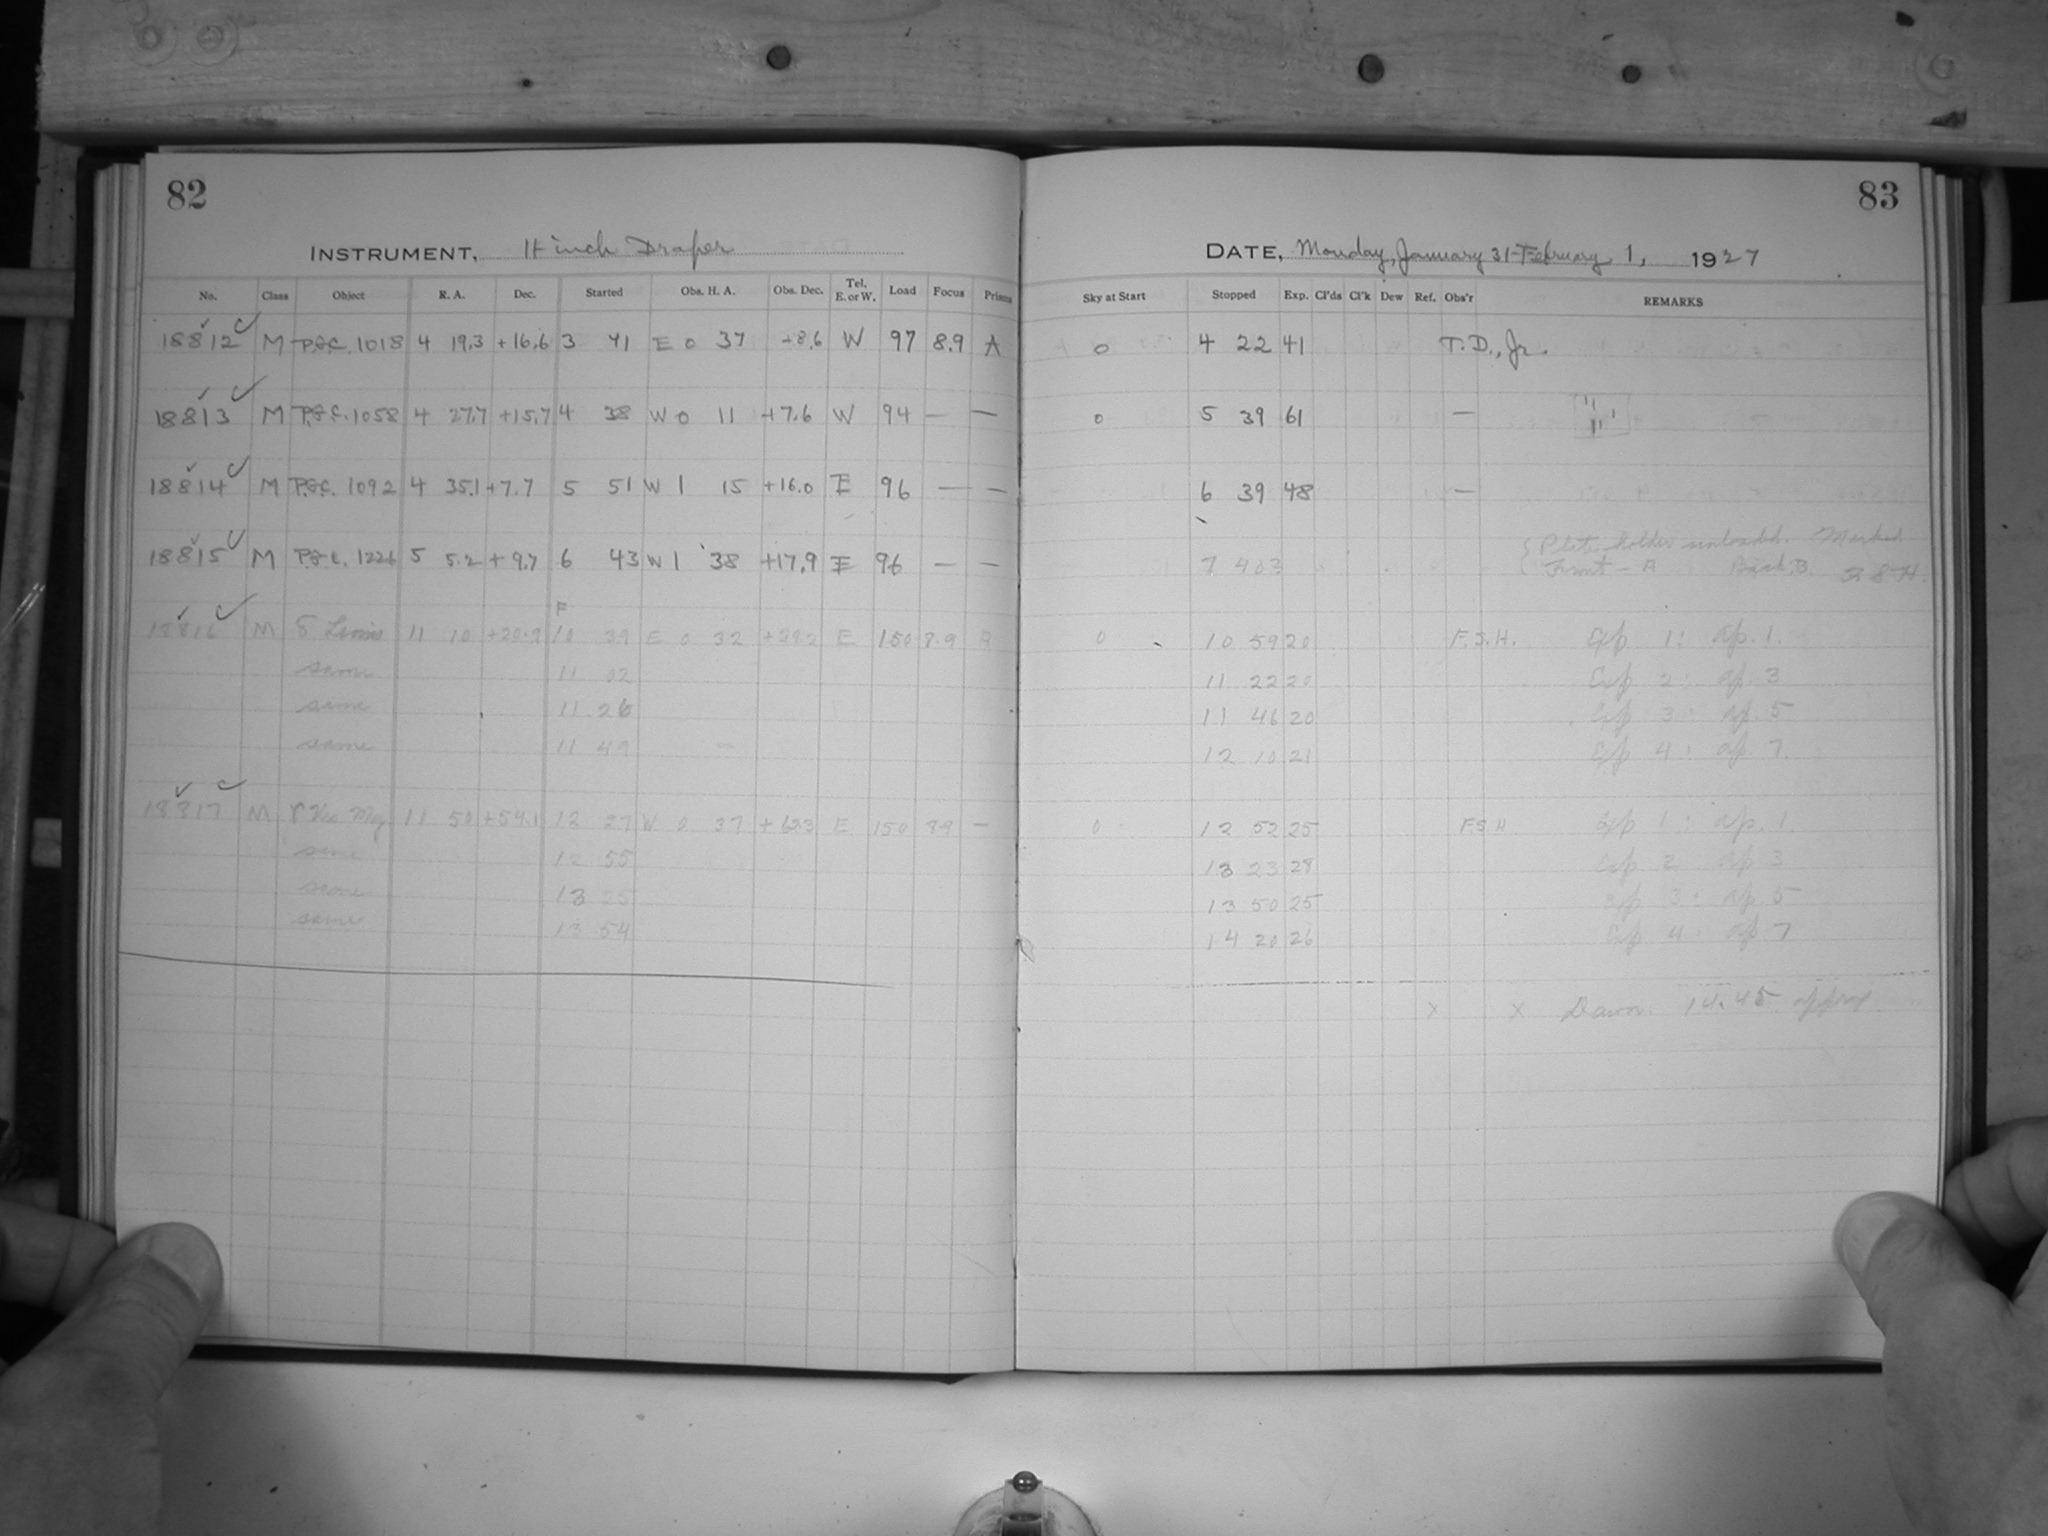 82
INSTRUMENT, 11 inch Draper
No. Class Object R. A. Dec. Started Obs. H. A. Obs. Dec. Tel. E. or W. Load Focus Prisms
18812 M P.G.C. 1018 4 19.3 +16.6 3 41 E 0 37 +8.6 W 97 8.9 A
18813 M P.G.C. 1058 4 27.7 +15.7 4 38 W 0 11 +7.6 W 94 — —
18814 M P.G.C. 1092 4 35.1 +7.7 5 51 W 1 15 +16.0 E 96 — —
18815 M P.G.C. 1226 5 5.2 +9.7 6 43 W 1 38 +17.9 E 96 — —
F
18816 M δ Leonis 11 10 +20.9 10 39 E 0 32 E 150 8.9 A
same 11 02
same 11 26
same 11 49
18817 M 11 50 +54.1 12 27 W 0 37 E 150 8.9 —
same 12 55
same 13 25
same 13 54
83
DATE, Monday, January 31-February 1, 1927
Sky at Start Stopped Exp. Cl'ds Cl'k Dew Ref. Obs'r REMARKS
0 4 22 41 T.D., Jr.
0 5 39 61 —
6 39 48 —
7 40 Plate holder unloaded. Marked
Front - A Back, B.
0 10 59 20 F.S.H. Exp 1: ap. 1.
11 22 20 Exp 2: ap. 3
11 46 20 Exp 3: ap. 5
12 10 21 Exp 4: ap. 7.
0 12 52 25 F.S.H. Exp 1: ap. 1.
13 23 28 Exp 2: ap 3
13 50 25 Exp 3: ap. 5
14 20 26 Exp 4: ap 7
x x Dawn: 14.45 approx.